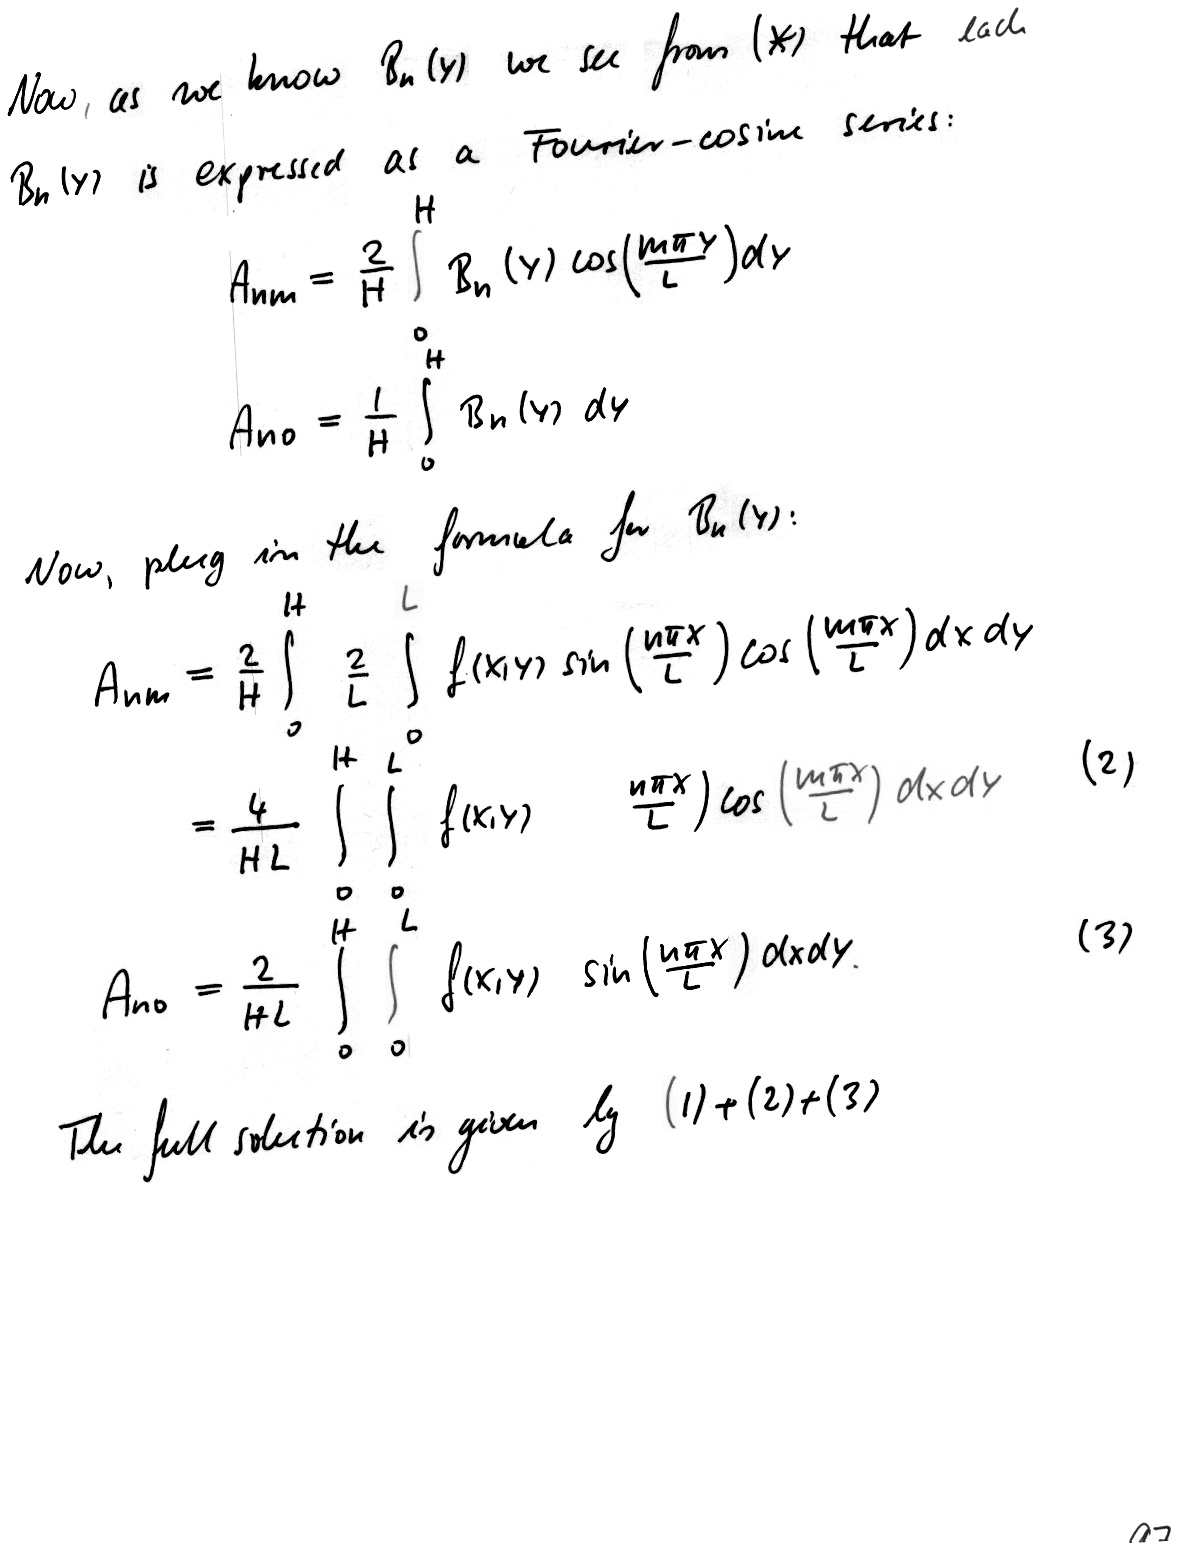 Now, as we know Bn(y) we see from (*) that each
Bn(y) is expressed as a Fourier-cosine series:
Anm = 2/H ∫₀ᴴ Bn(y) cos(mπy/L) dy
Ano = 1/H ∫₀ᴴ Bn(y) dy
Now, plug in the formula for Bn(y):
Anm = 2/H ∫₀ᴴ 2/L ∫₀ᴸ f(x,y) sin(nπx/L) cos(mπx/L) dx dy
= 4/HL ∫₀ᴴ ∫₀ᴸ f(x,y) nπx/L) cos(mπx/L) dxdy (2)
Ano = 2/HL ∫₀ᴴ ∫₀ᴸ f(x,y) sin(nπx/L) dxdy. (3)
The full solution is given by (1)+(2)+(3)